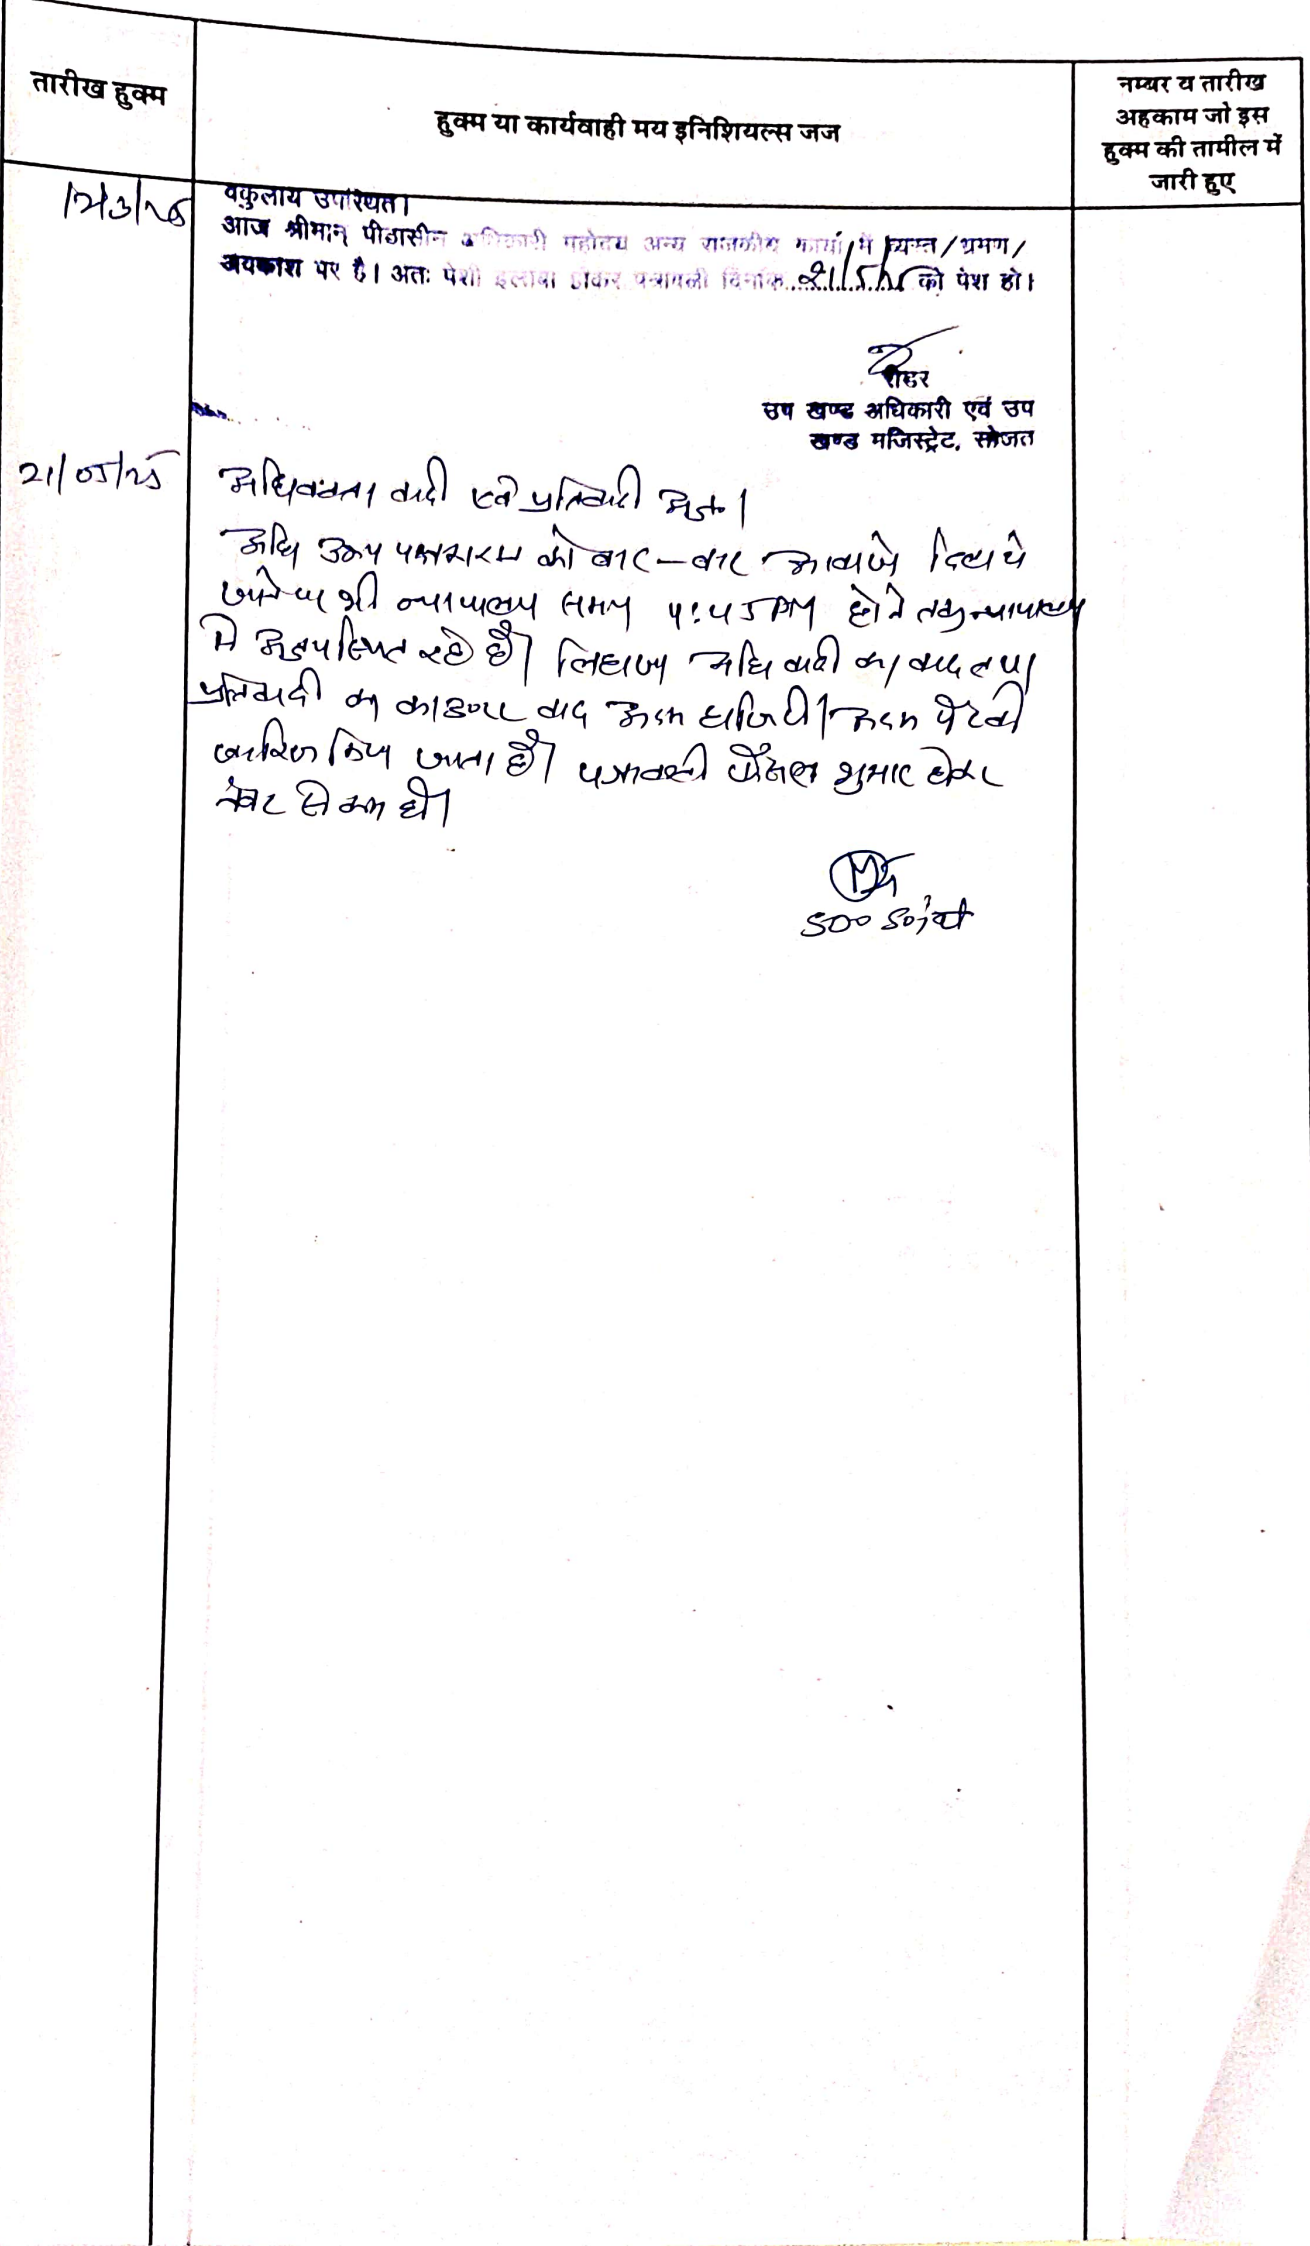 तारीख हुक्म
हुक्म या कार्यवाही मय इनिशियल्स जज
नम्बर य तारीख
अहकाम जो इस
हुक्म की तामील में
जारी हुए
वकुलाय उपस्थित।
आज श्रीमान् पीठासीन अधिकारी महोदय अन्य राजकीय कार्यों में व्यस्त/भ्रमण/
अवकाश पर है। अतः पेशी इलावा होकर पत्रावली दिनांक 21/5/25 को पेश हो।
रीडर
उप खण्ड अधिकारी एवं उप
खण्ड मजिस्ट्रेट, सोजत
21/05/25
अधिवक्ता वादी एवं प्रतिवादी अनु०।
अधि उभय पक्षकारान को बार-बार आवाजे दिलाये
जाने पर भी न्यायालय समय 4:45 PM होने तक न्यायालय
मे अनुपस्थित रहे है। लिहाजा अधि वादी का वाद तथा
प्रतिवादी का काउण्टर वाद अदम हाजिरी/अदम पैरवी
खारिज किया जाता है। पत्रावली फैसल शुमार होकर
नंबर से कम हो।
SDO Sojat